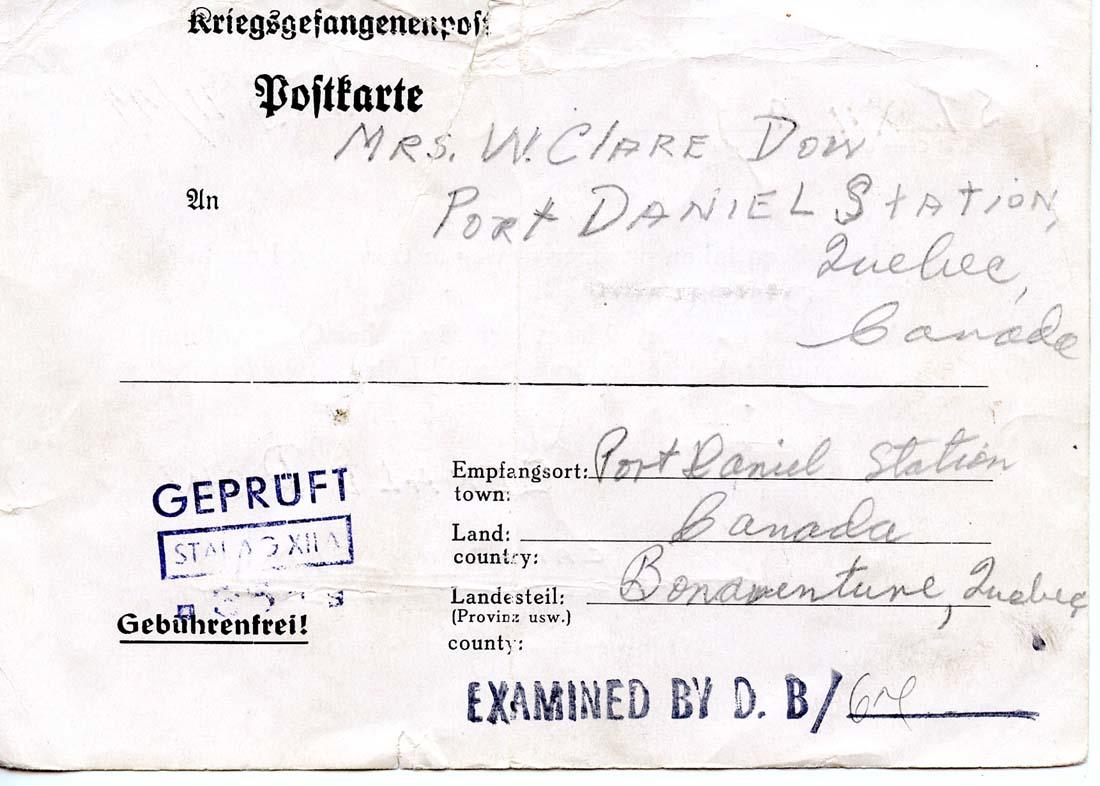 Kriegsgefangenenpost
Postkarte
Mrs. W. Clare Dow
An
Port Daniel Station,
Quebec,
Canada
Empfangsort: Port Daniel Station
town:
Land: Canada
country:
Landesteil: Bonaventure, Quebec
(Provinz usw.)
county:
GEPRÜFT
STALAG XII A
Gebührenfrei!
EXAMINED BY D. B/